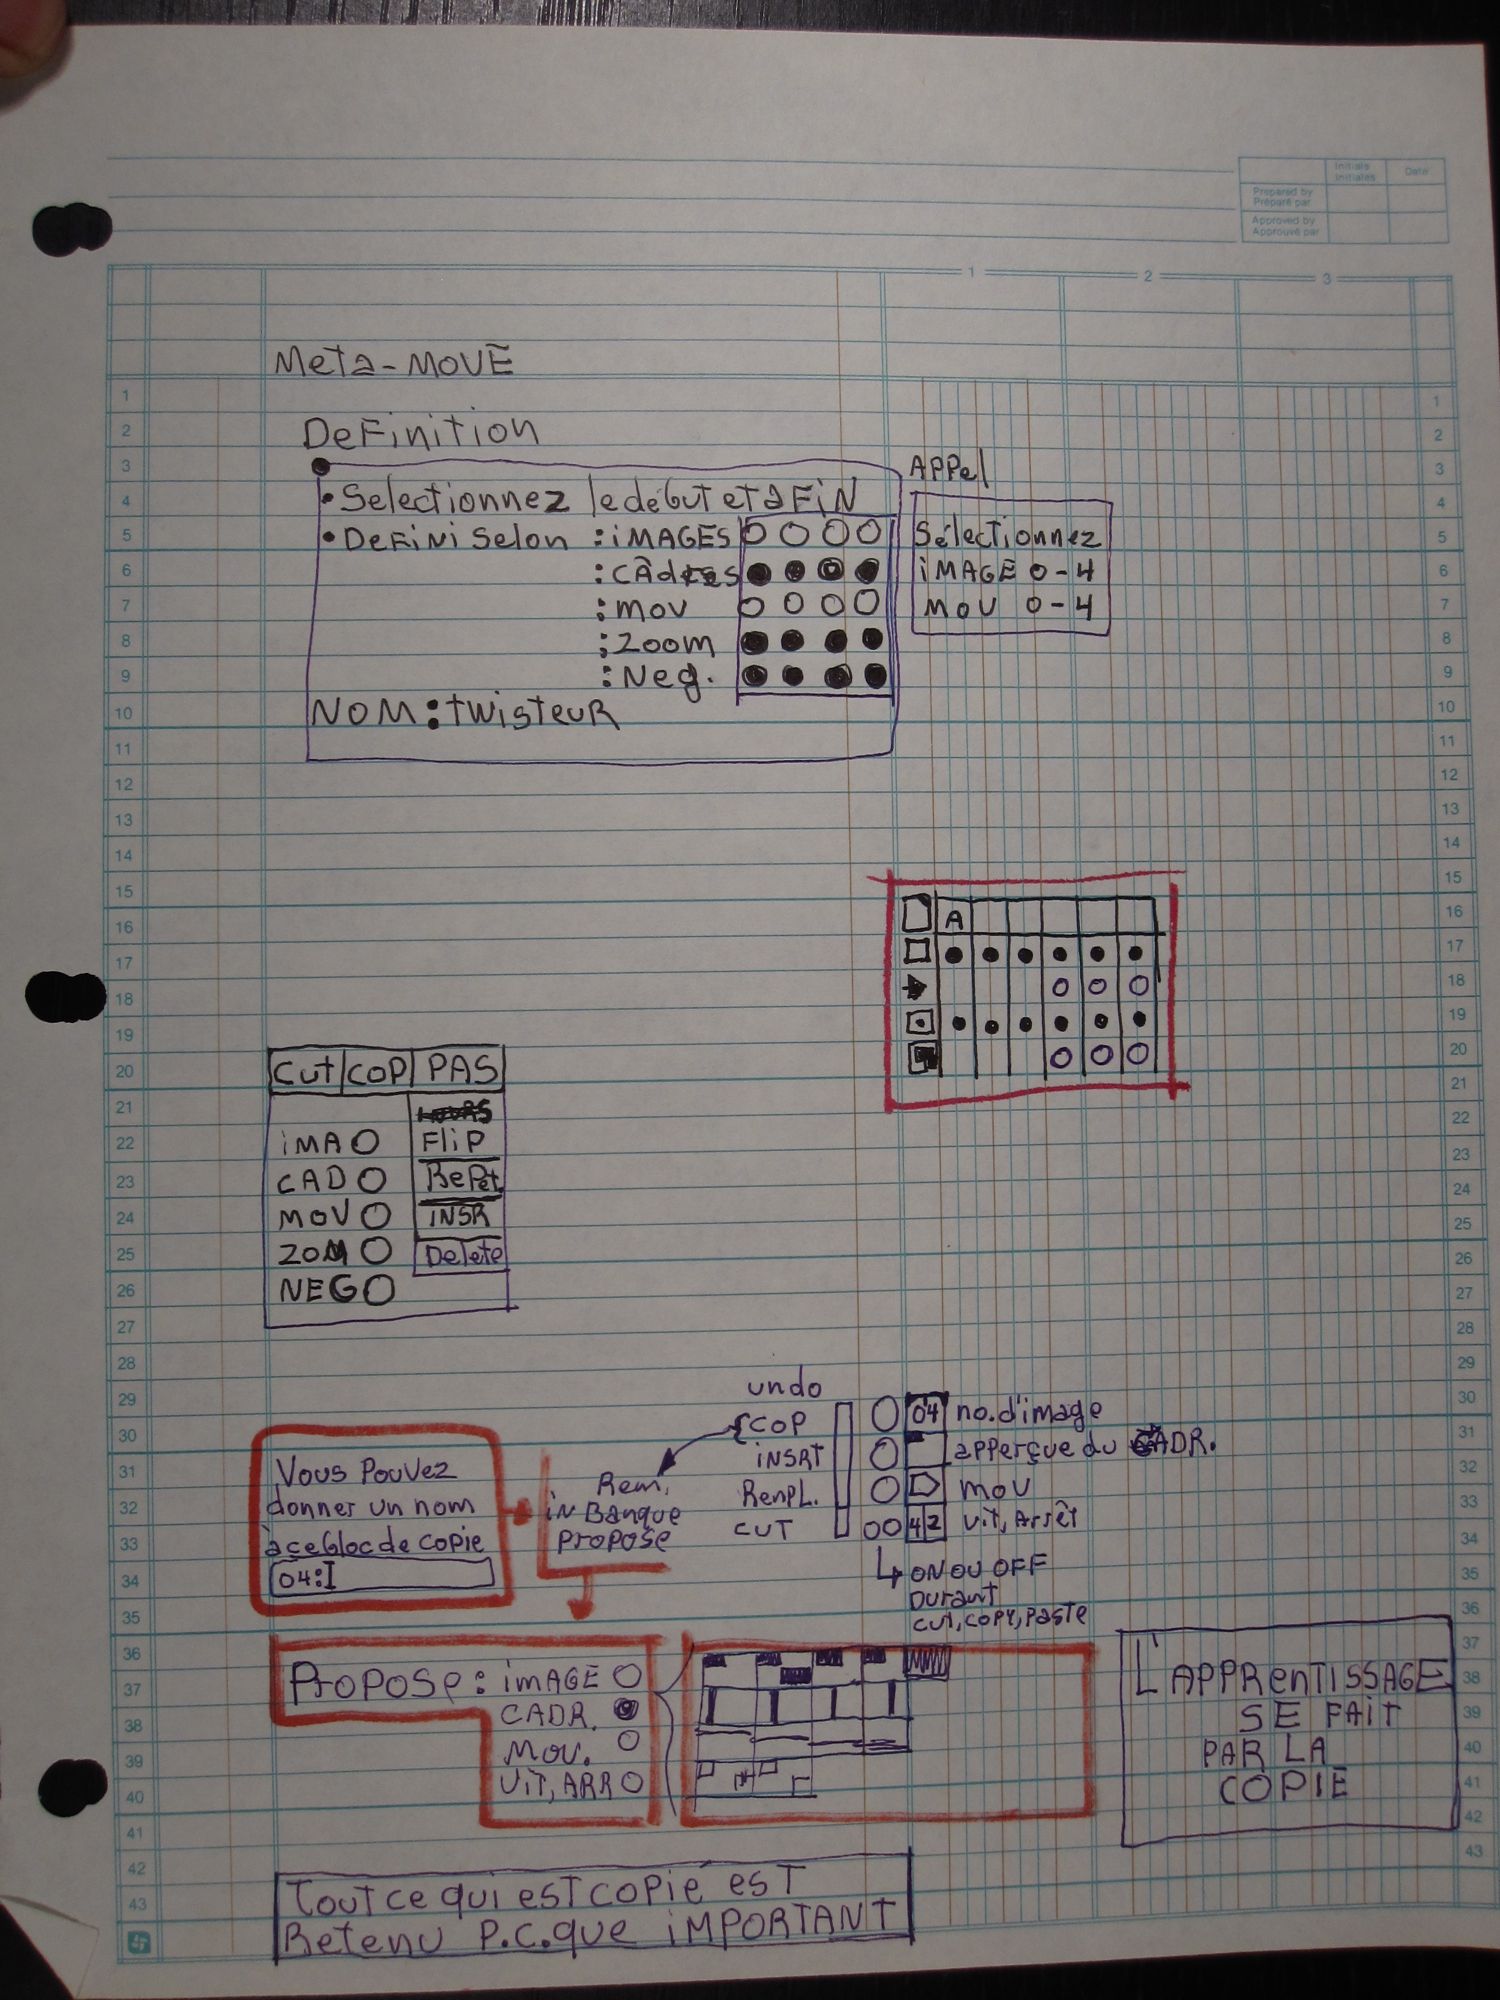 Initials
Initiales
Date
Prepared by
Préparé par
Approved by
Approuvé par
1 2 3
Meta-MOVE
DeFinition
• Selectionnez le début et la FiN
• DeFiNi Selon : iMAGES
: câdres
: mov
: Zoom
: Neg.
NOM : twisteuR
APPel
Sélectionnez
iMAGE 0-4
MOV 0-4
A
Cut COP PAS
iMA FliP
CAD RePét.
MOV iNSR
ZOM Delete
NEG
undo
COP
iNSRT
RempL.
CUT
04 no. d'image
apperçue du CADR.
mov
42 Vit, Arrêt
ON OU OFF
Durant
cut, copy, paste
Rem,
iN Banque
propose
Vous Pouvez
donner un nom
à ce bloc de copie
04:I
Propose : iMAGE
CADR.
Mov.
ViT, ARR
L'APPRENTISSAGE
SE FAiT
PAR LA
COPIE
Tout ce qui est copié est
Retenu P.C.que iMPORTANT
1
2
3
4
5
6
7
8
9
10
11
12
13
14
15
16
17
18
19
20
21
22
23
24
25
26
27
28
29
30
31
32
33
34
35
36
37
38
39
40
41
42
43
1
2
3
4
5
6
7
8
9
10
11
12
13
14
15
16
17
18
19
20
21
22
23
24
25
26
27
28
29
30
31
32
33
34
35
36
37
38
39
40
41
42
43